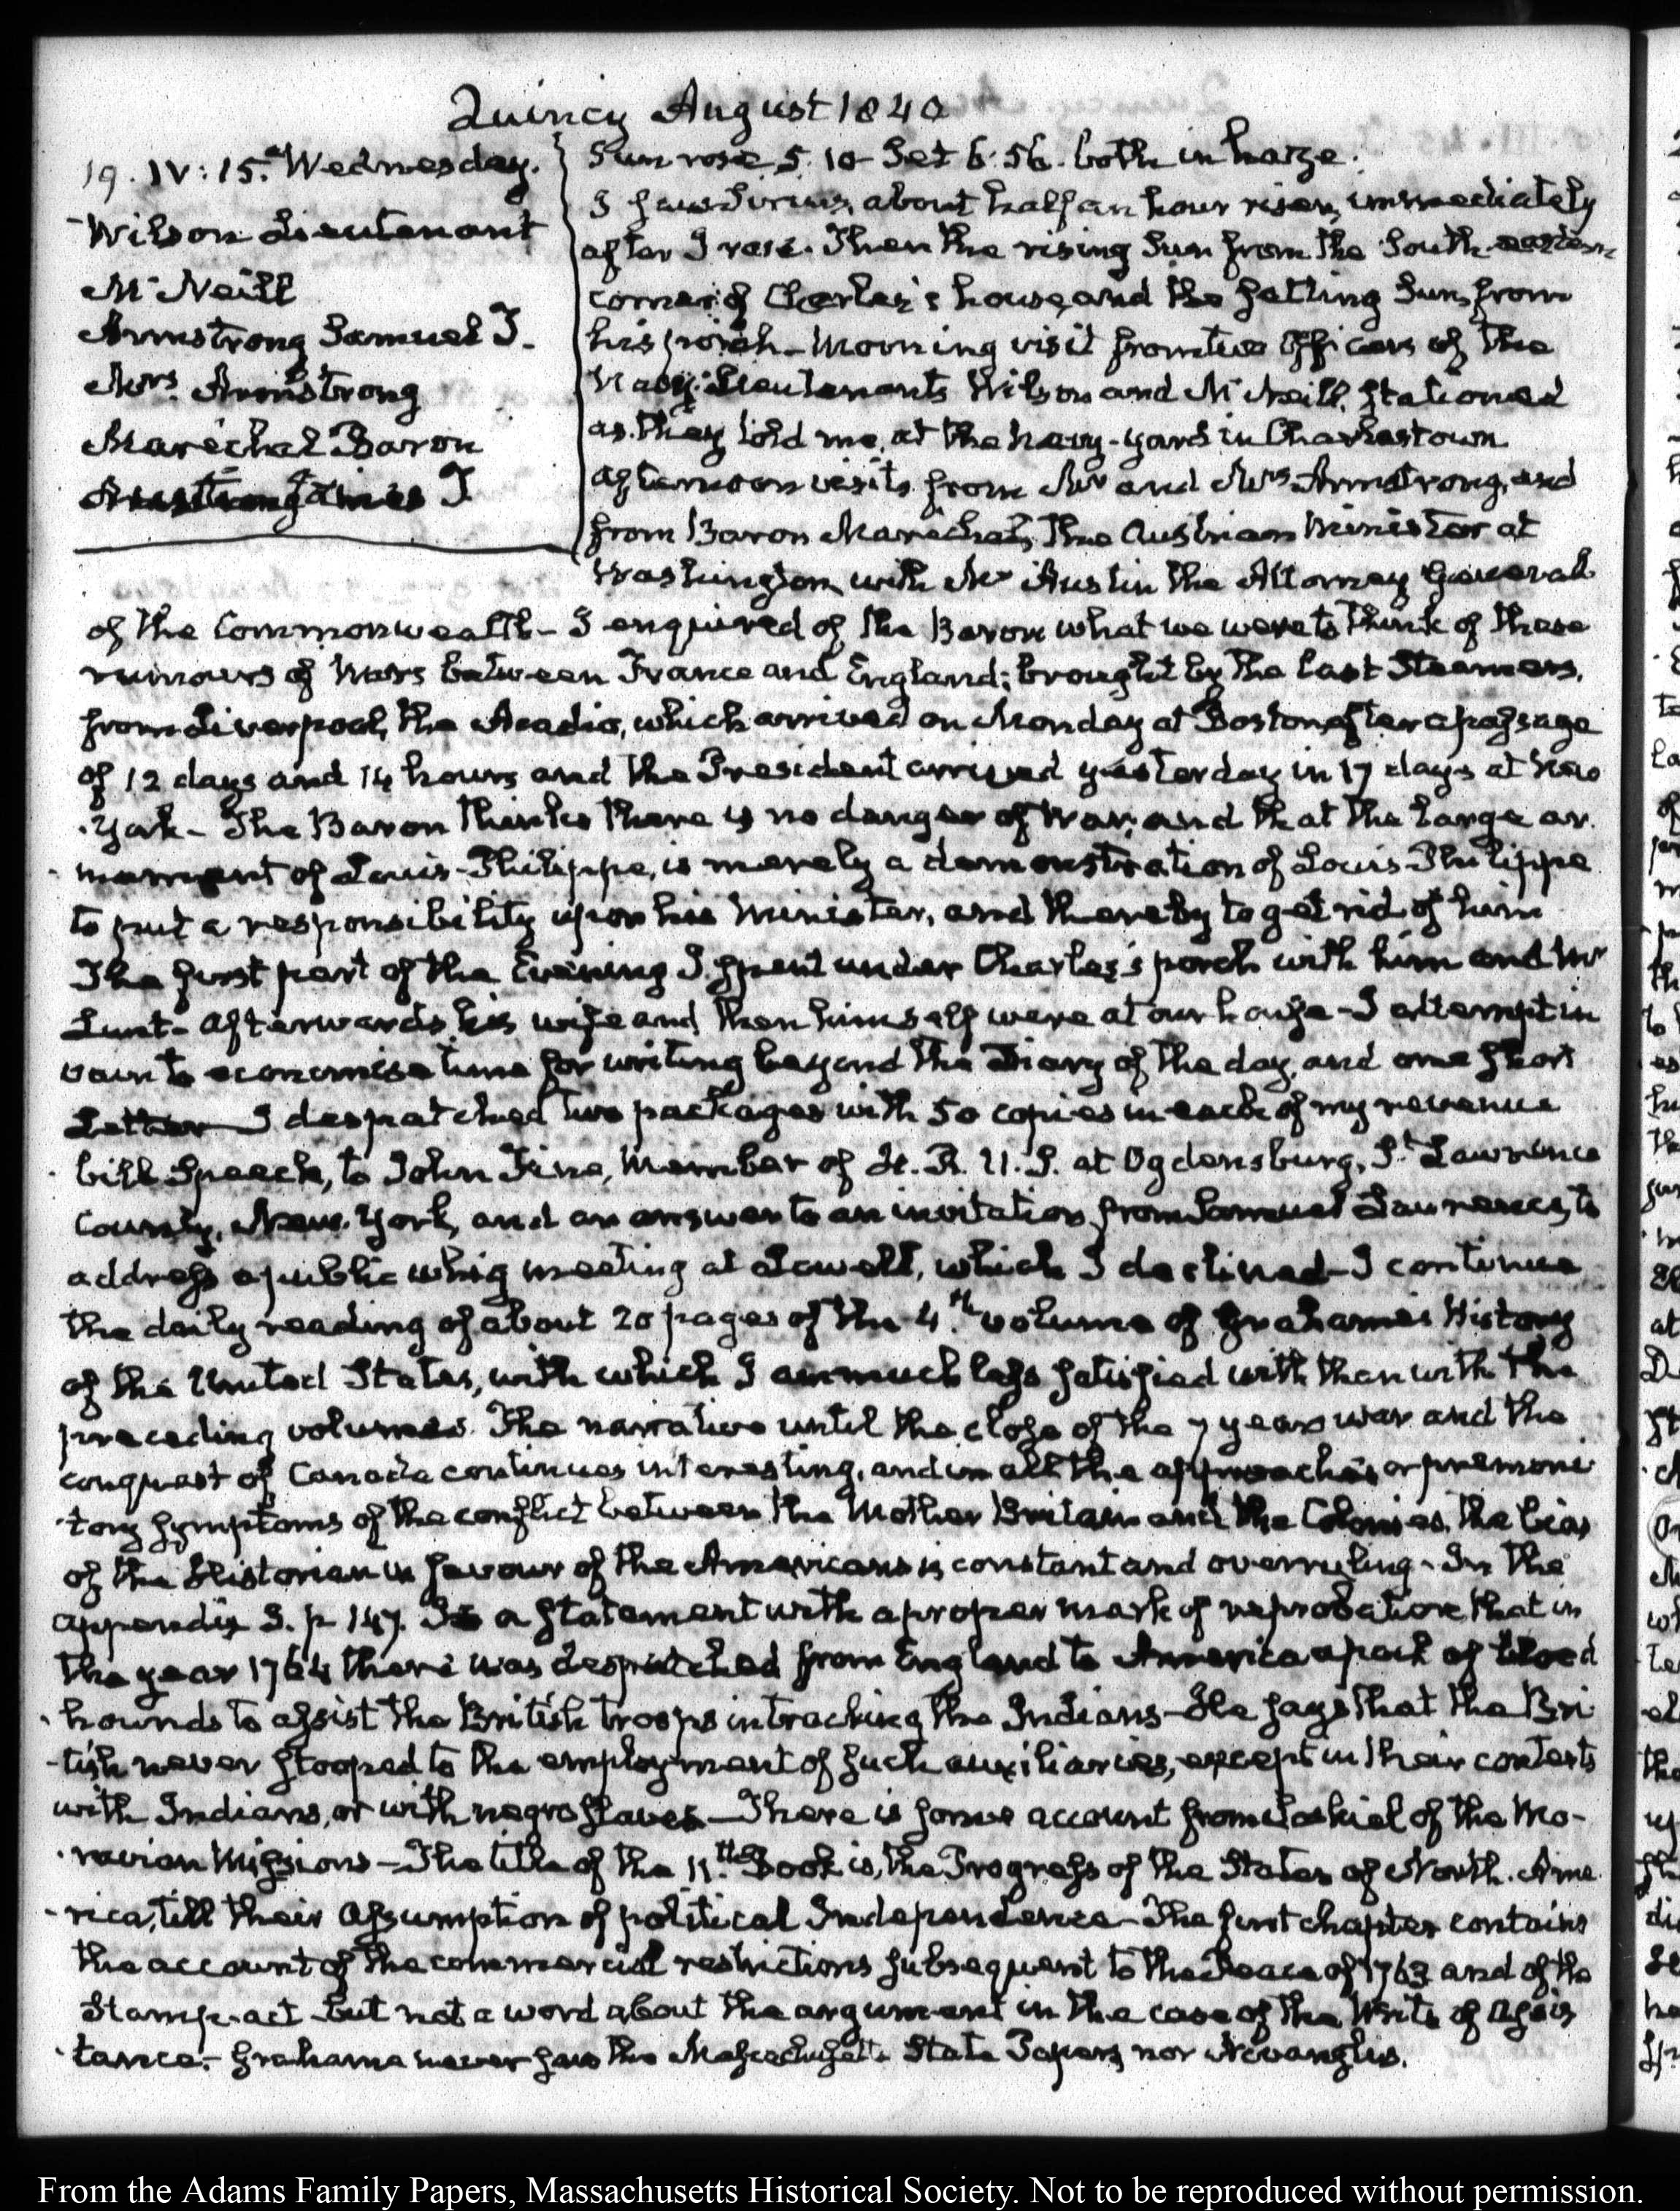 Quincy August 1840
19. IV: 15. Wednesday.
Wilson Lieutenant
McNeill
Armstrong Samuel T.
Mrs. Armstrong
Maréchal Baron
Austin James T
Sun rose 5. 10 Set 6. 56. both in haze.
I saw Sirius, about half an hour risen, immediately
after I rose. Then the rising Sun from the South-eastern
corner of Charles's house, and the setting Sun, from
his porch – Morning visit from two Officers of the
Navy. Lieutenants Wilson and McNeill, stationed
as they told me, at the navy-yard in Charlestown
afternoon visits from Mr and Mrs Armstrong, and
from Baron Maréchal, the Austrian Minister at
Washington, with Mr Austin the Attorney General
of the Commonwealth – I enquired of the Baron what we were to think of these
rumours of Wars between France and England; brought by the last Steamers,
from Liverpool, the Acadia, which arrived on Monday at Boston after a passage
of 12 days and 14 hours and the President arrived yesterday in 17 days at New
-York – The Baron thinks there is no danger of War, and that the large ar-
mament of Louis-Philippe, is merely a demonstration of Louis Philippe
to put a responsibility upon his Minister, and thereby to get rid of him
The first part of the Evening I spent under Charles's porch with him and Mr
Lunt – Afterwards his wife and then himself were at our house – I attempt in
vain to economise time for writing beyond the Diary of the day, and one short
Letter – I despatched two packages with 50 copies in each of my revenue
bill Speech, to John Fine, Member of H. R. U. S. at Ogdensburg, St Lawrence
County, New-York, and an answer to an invitation from Samuel Lawrence, to
address a public whig meeting at Lowell, which I declined – I continue
the daily reading of about 20 pages of the 4th volume of Grahame's History
of the United States, with which I am much less satisfied with than with the
preceding volumes. The narrative until the close of the 7 years war and the
conquest of Canada continues interesting, and in all the approaches or premoni-
tory symptoms of the conflict between the Mother Britain and the Colonies, the bias
of the Historian in favour of the Americans is constant and overruling – In the
appendix 3. p 147. Is a statement with a proper mark of reprobation that in
the year 1764 there was despatched from England to America a pack of blood
-hounds to assist the British troops in tracking the Indians – He says that the Bri-
-tish never stooped to the employment of such auxiliaries, except in their contests
with Indians, or with negro slaves – There is some account from Loskiel of the Mo-
-ravian Missions – The title of the 11th Book is, the Progress of the States of North-Ame-
-rica, till their Assumption of political Independence – The first chapter contains
the account of the commercial restrictions subsequent to the Peace of 1763 and of the
Stamp-act – but not a word about the argument in the case of the Writs of Assis-
-tance. – Grahame never saw the Massachusetts State Papers, nor Novanglus.
From the Adams Family Papers, Massachusetts Historical Society. Not to be reproduced without permission.